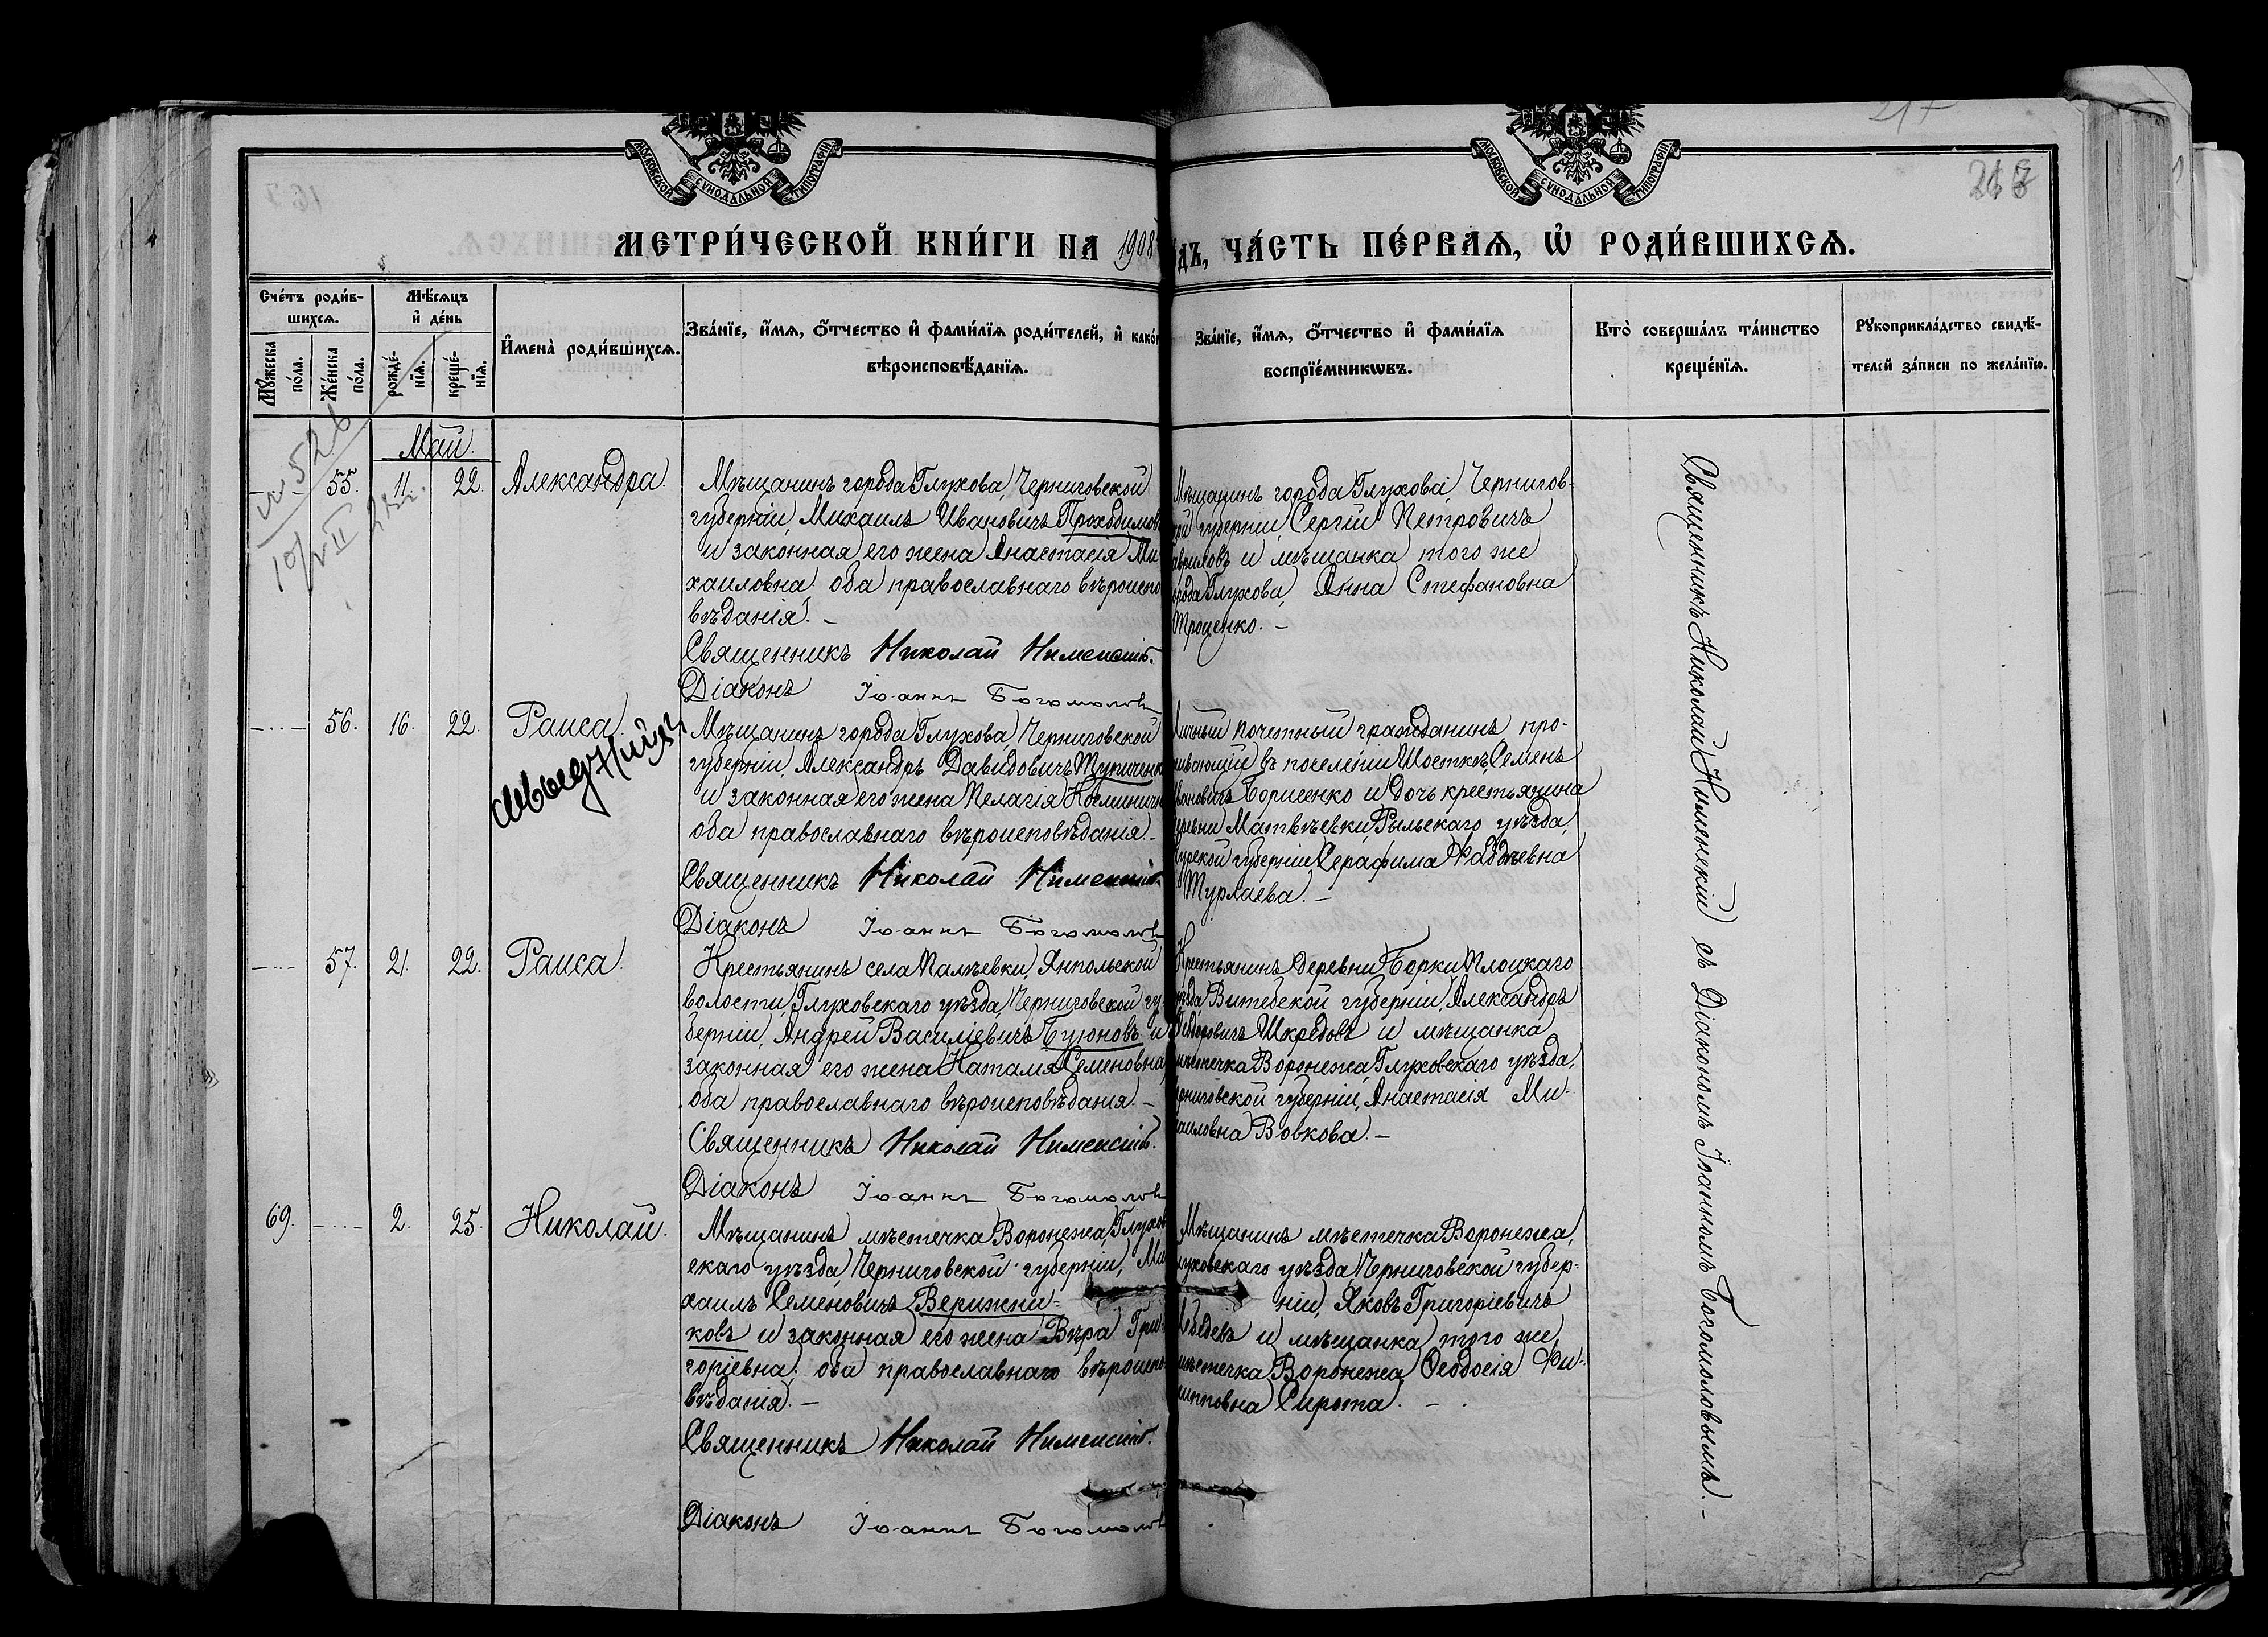 МОСКОВСКОЙ СУНОДАЛЬНОЙ ТИПОГРАФІИ
МОСКОВСКОЙ СУНОДАЛЬНОЙ ТИПОГРАФІИ
МЕТРИ́ЧЕСКОЙ КНИ́ГИ НА 1908
дъ, ЧА́СТЬ ПЕ́РВАѦ, Ѡ РОДИ́ВШИХСѦ.
Сче́тъ роди́в-
шихсѧ.
Мѣ́сѧцъ
и҆ де́нь
Мꙋ́жеска
по́ла.
Же́нска
по́ла.
рожде́-
нїѧ.
креще́-
нїѧ.
И҆мена̀ роди́вшихсѧ.
Зва́нїе, и҆́мѧ, ѻ҆́тчество и҆ фами́лїѧ роди́телей, и҆ како́
вѣроисповѣ́данїѧ.
Зва́нїе, и҆́мѧ, ѻ҆́тчество и҆ фами́лїѧ
воспрїе́мникѡвъ.
Кто̀ соверша́лъ та́инство
креще́нїѧ.
Рꙋкоприкла́дство свидѣ́-
телей за́писи по жела́нїю.
Май.
55. 11. 22. Александра.
Мѣщанинъ города Глухова, Черниговской
губерніи, Михаилъ Ивановичъ Проходимов
и законная его жена Анастасія Ми
хаиловна оба православнаго вѣроиспо
вѣданія. –
Священникъ Николай
Діаконъ Іоаннъ Богомолов
Мѣщанинъ города Глухова, Чернигов-
кой губерніи, Сергій Петровичъ
авриловъ и мѣщанка того же
орода Глухова, Анна Стефановна
Троценко. –
56. 16. 22. Раиса.
Мѣщанинъ города Глухова, Черниговской
губерніи, Александръ Давидовичъ
и законная его жена Пелагія
оба православнаго вѣроисповѣданія. –
Священникъ Николай
Діаконъ Іоаннъ Богомолов
Личный почетный гражданинъ про-
живающій въ поселеніи Шосткѣ, Семенъ
Ивановичъ Борисенко и дочь крестьянина
деревни Матвѣевки, Рыльскаго уѣзда,
Курской губерніи Серафима
Турлаева. –
57. 21. 22. Раиса.
Крестьянинъ села Палѣевки, Янпольской
волости, Глуховскаго уѣзда, Черниговской гу-
берніи, Андрей Василіевичъ Буюновъ и
законная его жена Наталія Семеновна
оба православнаго вѣроисповѣданія. –
Священникъ Николай
Діаконъ Іоаннъ Богомолов
Крестьянинъ деревни Борки Плоцкаго
уѣзда Витебской губерніи, Александръ
Шкредовъ и мѣщанка
мѣстечка Воронежа, Глуховскаго уѣзда,
ерниговской губерніи, Анастасія Ми-
аиловна Вовкова. –
69. 2. 25. Николай.
Мѣщанинъ мѣстечка Воронежа, Глухов
скаго уѣзда, Черниговской губерніи, Ми
хаилъ Семеновичъ Верижни-
ковъ и законная его жена Вѣра Гри-
горіевна; оба православнаго вѣроиспо
вѣданія. –
Священникъ Николай
Діаконъ Іоаннъ Богомолов
Мѣщанинъ мѣстечка Воронежа,
луховскаго уѣзда, Черниговской губер-
ніи, Яковъ Григоріевичъ
Лебедевъ и мѣщанка того же
мѣстечка Воронежа Ѳеодосія Фи-
липповна Сирота. –
Священникъ Николай Нименскій съ Діакономъ Іоанномъ Богомоловымъ. –